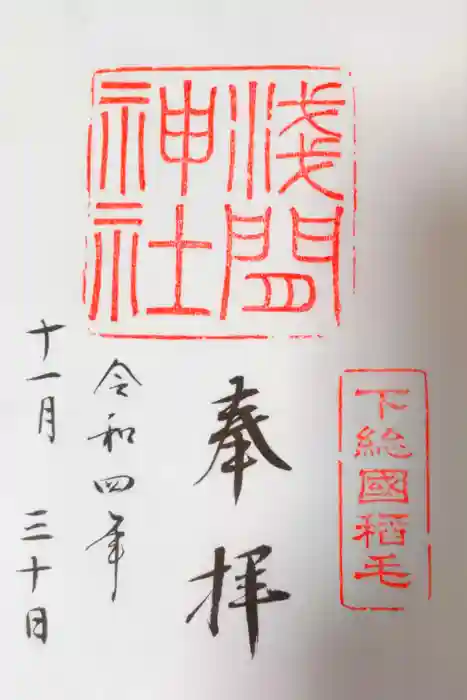 下総國稲毛
浅間
神社
奉拝
令和四年
十一月三十日